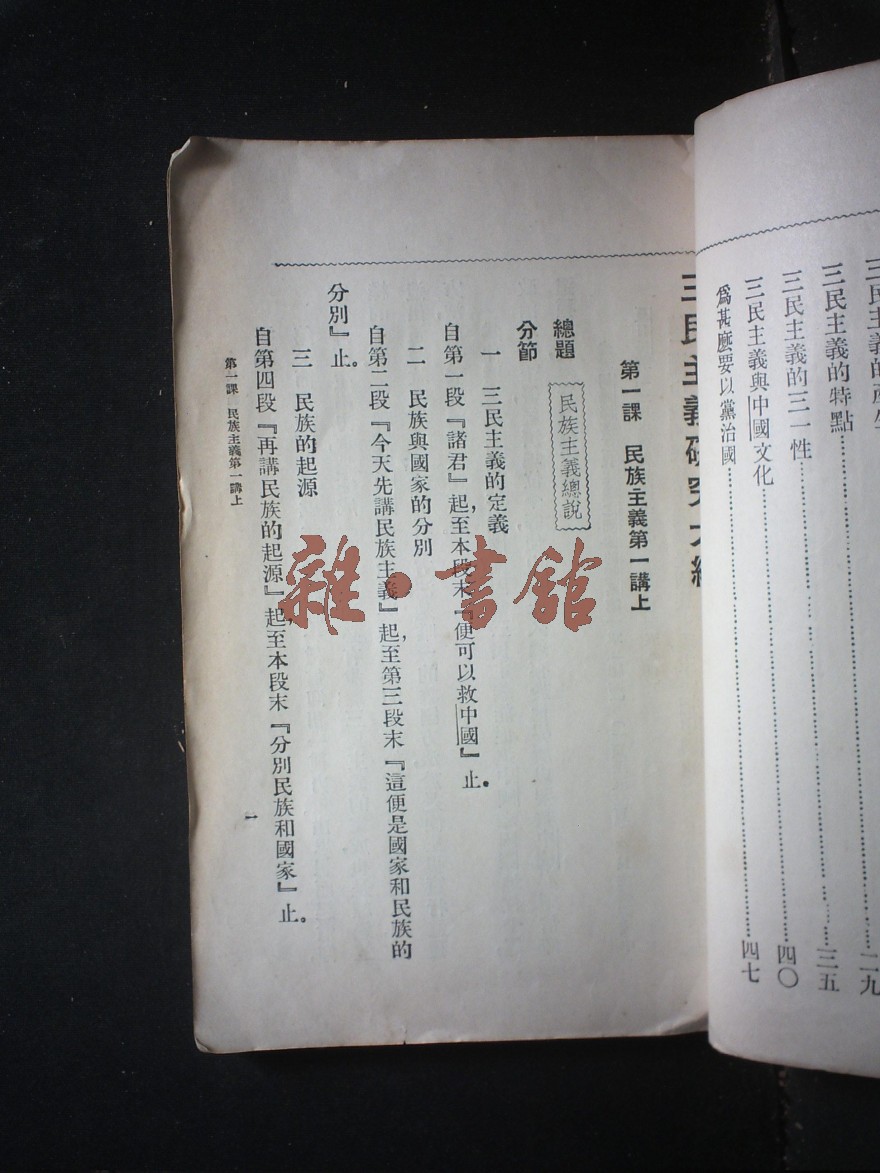 三民主義的
三民主義的特點……………………三五
三民主義的三一性……………………四〇
三民主義與中國文化……………………
爲甚麼要以黨治國……………………四七
二九
三民主義研究大綱
第一課 民族主義第一講上
總題 民族主義總說
分節
一 三民主義的定義
自第一段『諸君』起,至本段末『便可以救中國』止。
二 民族與國家的分別
自第二段『今天先講民族主義』起,至第三段末『這便是國家和民族的
分別』止。
三 民族的起源
自第四段『再講民族的起源』起,至本段末『分別民族和國家』止。
第一課 民族主義第一講上
一
雜·書館